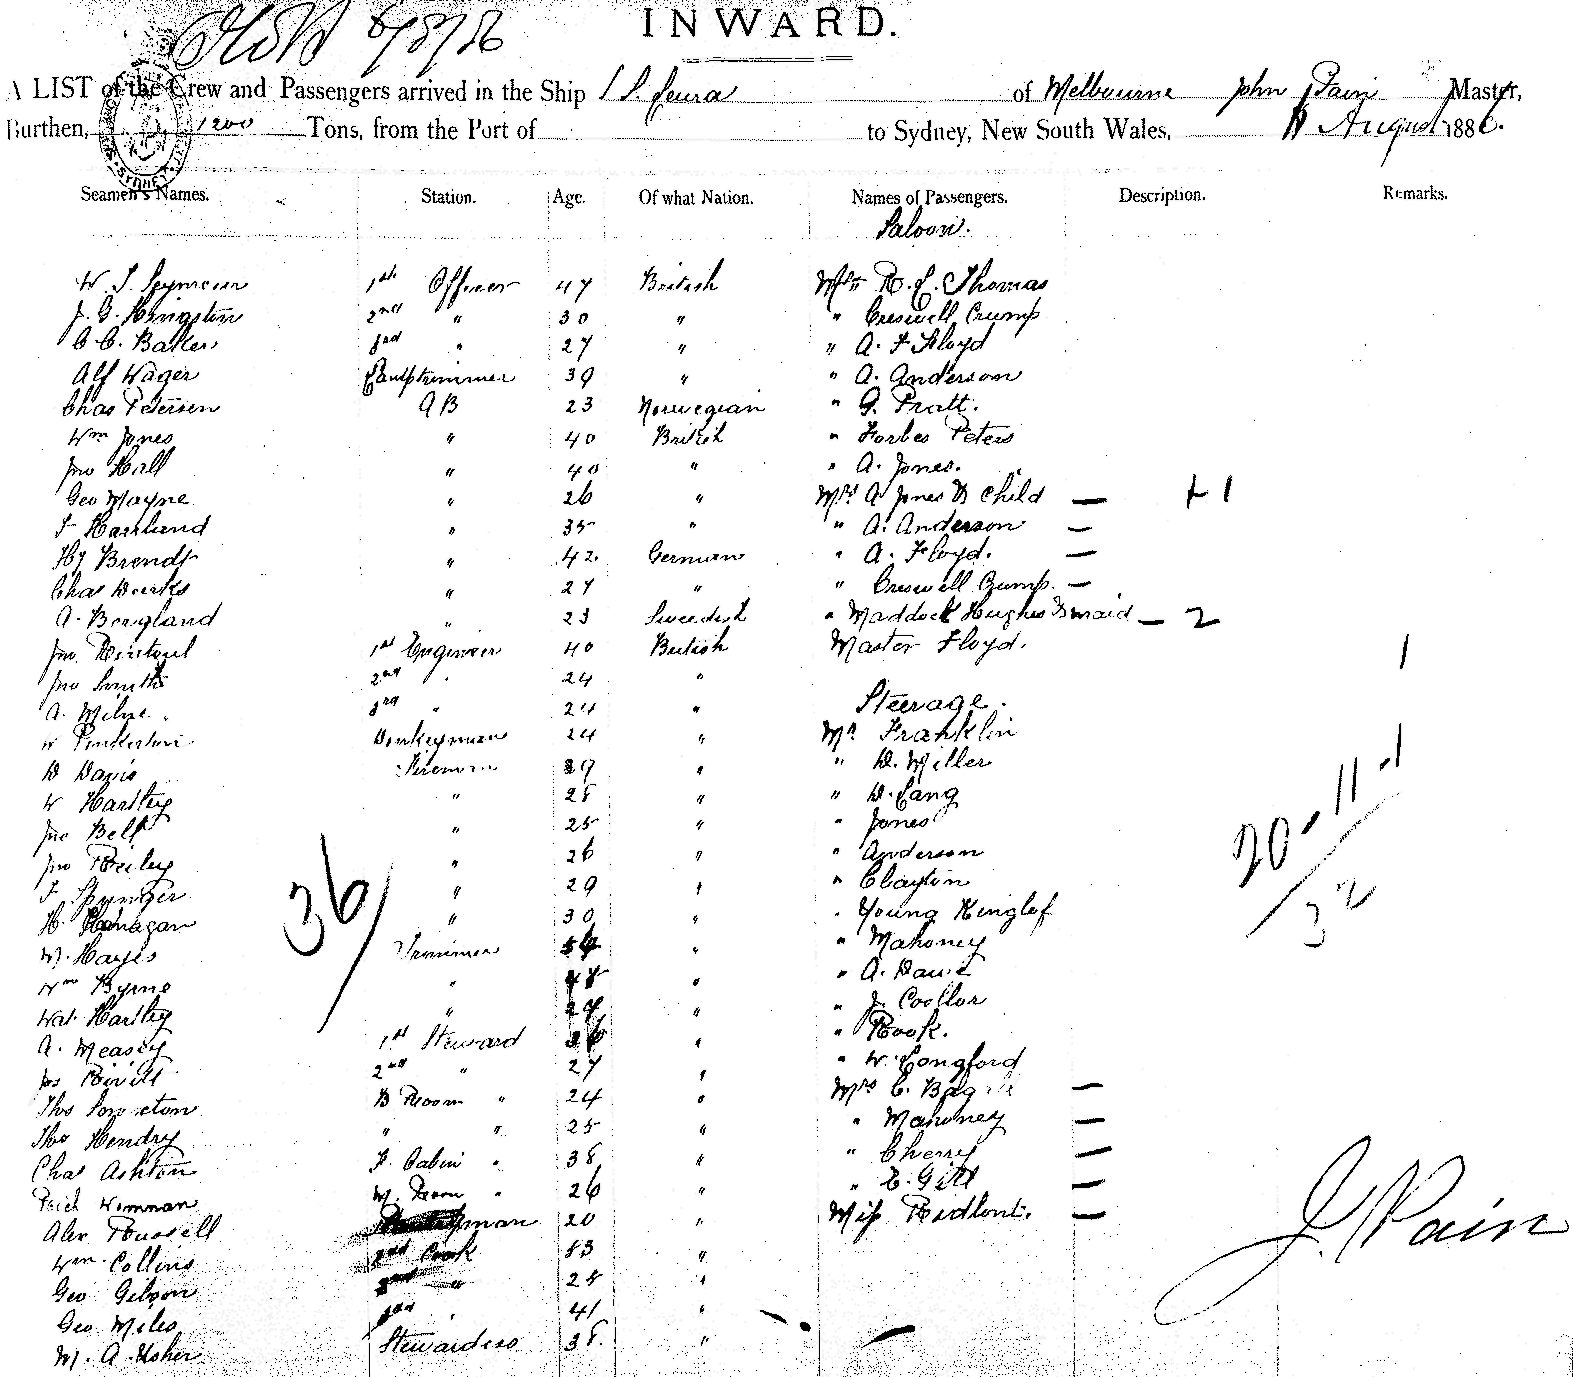 INWARD.
A LIST of the Crew and Passengers arrived in the Ship S.S. of Melbourne John Pain Master,
Burthen, 1200 Tons, from the Port of to Sydney, New South Wales, August 1886.
Seamen's Names. Station. Age. Of what Nation. Names of Passengers. Description. Remarks.
Saloon.
1st Officer 47 British R. L. Thomas
J. G. Kingston 2nd " 30 " " Creswell Crump
C. C. Baker 3rd " 27 " " A. F Floyd
Alf Wager Lamptrimmer 39 " " A. Anderson
Chas Petersen AB 23 Norwegian " G. Pratt.
Wm Jones " 40 British " Forbes Peters
Jno Hall " 40 " " A. Jones.
Geo Mayne " 26 " Mrs A Jones & Child — + 1
F Hartland " 35 " " A. Anderson —
Hy Brendt " 42. German " A. Floyd. —
Chas " 27 " " Creswell Crump —
A. Bergland " 23 Swedish " Maddock Hughes & maid — 2
Jno Rintoul 1st Engineer 40 British Master Floyd. 1
Jno Smith 2nd " 24 "
A. Milne 3rd " 24 " Steerage.
W Pinkerton Donkeyman 24 " Mr Franklin
D Davis Fireman 39 " " D. Miller
W Hartley " 28 " " D. Lang
Jno Bell " 25 " " Jones
Jno Reiley " 26 " " Anderson
F Springer " 29 " " Clayton
H. Flanagan " 30 " " Young
W. Hayes Trimmer " " Mahoney
Wm Byrne " " " A. David
Wat. Hartley " " " J.
A. Measey 1st Steward " " Rook.
Jos 2nd " 27 " " W. Longford
Thos B Room " 24 " Mrs C. —
Thos Hendry " " 25 " " Mahoney —
Chas Ashton F. Cabin " 38 " " Cherry —
M. Room " 26 " " E. Gill —
Alex Russell 20 " Miss —
Wm Collins 2nd Cook 53 "
Geo Gibson " 25 "
Geo Miles 3rd " 41 "
M. A. Usher Stewardess 38. "
36/
20 . 11 . 1
32
J. Pain